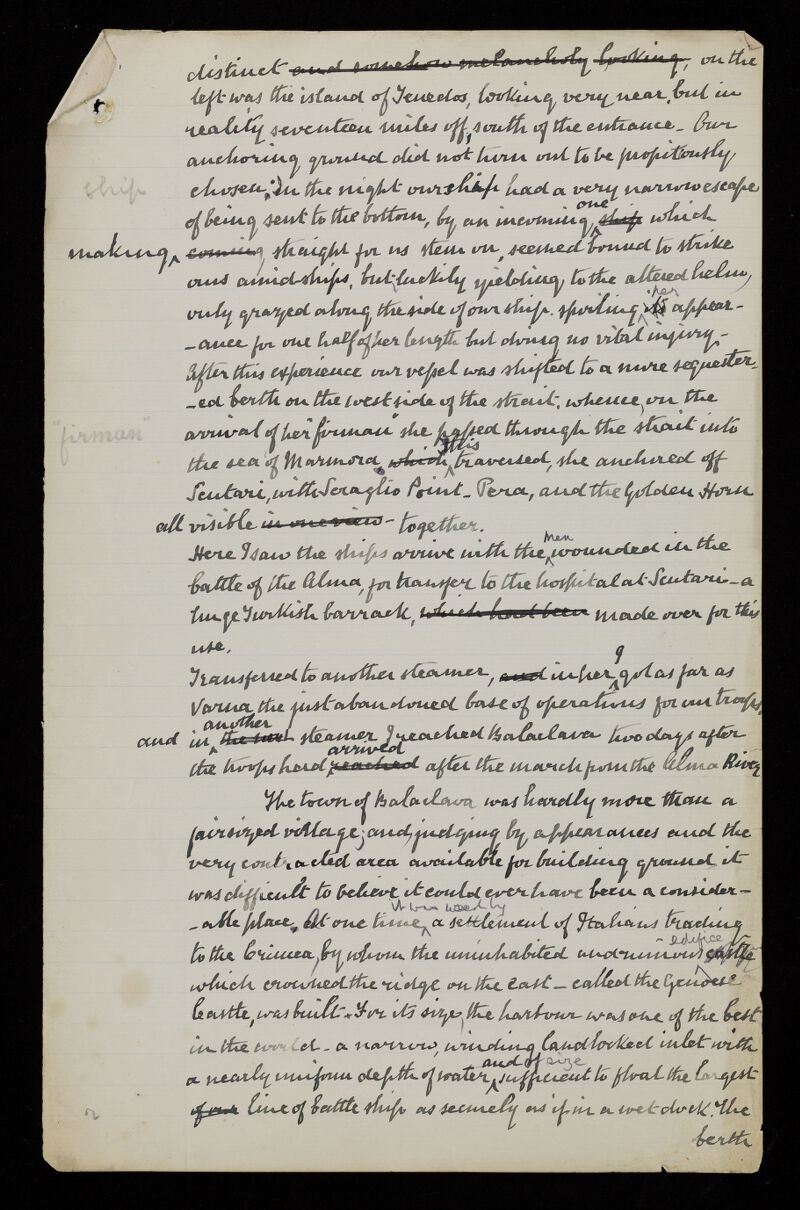 distinct and somehow melancholy looking, on the
left was the island of Tenedos, looking very near, but in
reality seventeen miles off, south of the entrance - Our
anchoring ground did not turn out to be propitously
ship
chosen; In the night our ship had a very narrow escape
of being sent to the bottom, by an incoming ^one ship which
making ^ coming straight for us stem on, seemed bound to strike
ours amidships, but luckily yielding to the altered helm,
only grazed along the side of our ship. spoiling its ^her appear-
-ance for one half of her length but doing no vital injury.
After this experience our vessel was shifted to a more sequester-
-ed berth on the west side of the strait. whence, on the
"firman"
arrival of her "firman" she passed through the strait into
the sea of Marmora, which ^this traversed, she anchored off
Scutari, with Seraglio Point - Pera, and the Golden Horn
all visible in one view - together.
Here I saw the ships arrive with the ^men wounded in the
battle of the Alma, for transfer to the hospital at Scutari - a
huge Turkish barrack, which had been made over for this
use.
Transferred to another steamer, and in her ^I got as far as
Varna the just abandoned base of operations for our troops,
and in ^another steamer I reached Balaclava two days after
the troops had reached ^arrived after the march from the Alma River
The town of Balaclava was hardly more than a
fair sized village; and, judging by appearances and the
very contracted area available for building ground it
was difficult to believe it could ever have been a consider-
-able place. At one time ^it was a settlement of Italians trading
to the Crimea, by whom the uninhabited and ruinous castle ^edifice
which crowned the ridge on the east - called the Genoese
Castle, was built - For its size, the harbour was one of the best
in the world - a narrow, winding landlocked inlet with
a nearly uniform depth of water ^and of size sufficient to float the largest
of our line of battle ship as securely as if in a wet dock. The
berth